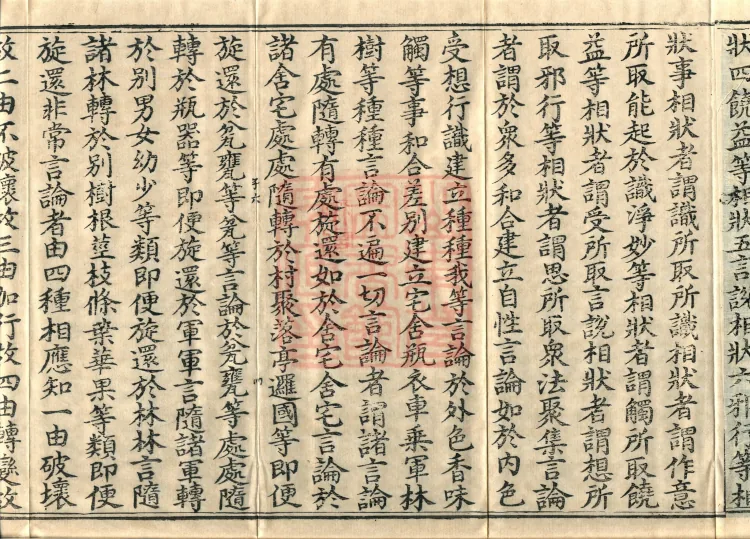 狀四饒益等相狀五言說相狀六邪行等相
狀事相狀者謂識所取所識相狀者謂作意
所取能起於識淨妙等相狀者謂觸所取饒
益等相狀者謂受所取言說相狀者謂想所
取邪行等相狀者謂思所取眾法聚集言論
者謂於眾多和合建立自性言論如於內色
受想行識建立種種我等言論於外色香味
觸等事和合差別建立宅舍瓶衣車乘軍林
樹等種種言論不遍一切言論者謂諸言論
有處隨轉有處旋還如於舍宅舍宅言論於
諸舍宅處處隨轉於村聚落亭邏國等即便
旋還於瓮甕等瓮等言論於瓮甕等處處隨
轉於瓶器等即便旋還於軍軍言隨諸軍轉
於別男女幼少等類即便旋還於林林言隨
諸林轉於別樹根莖枝條葉華果等類即便
旋還非常言論者由四種相應知一由破壞
故二由不破壞故三由加行故四由轉變故